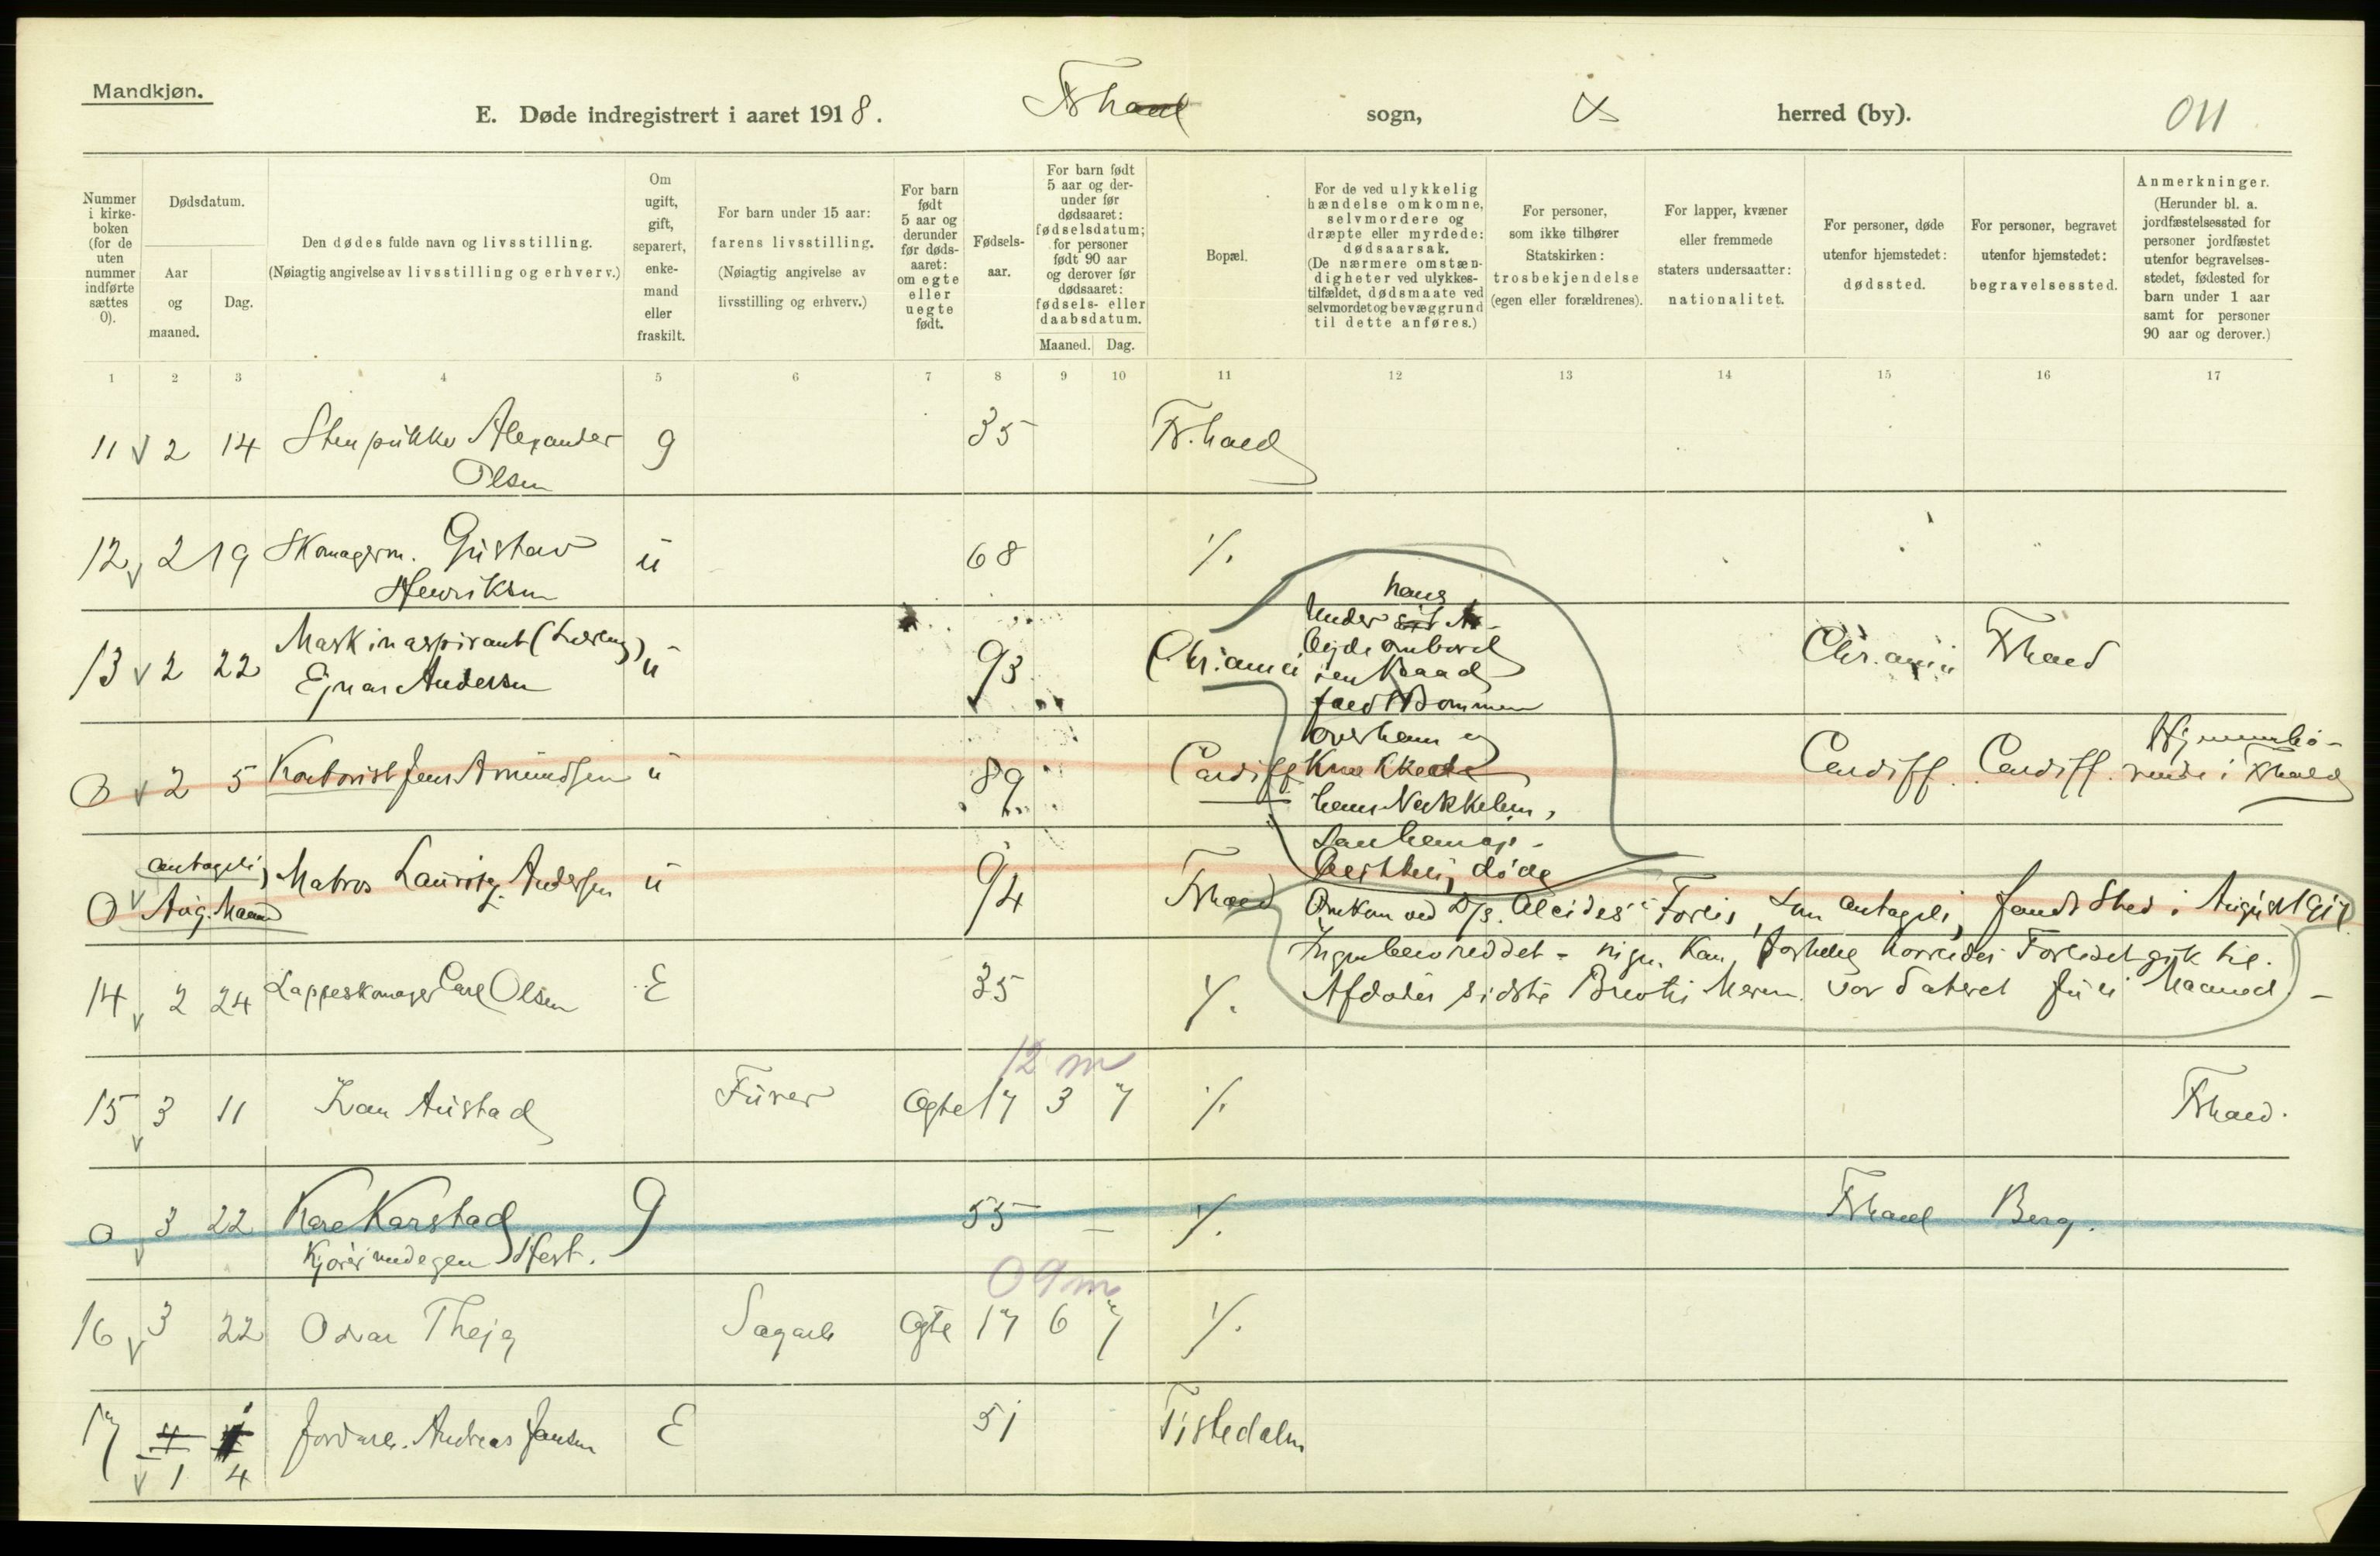 Mandkjøn.
E. Døde indregistrert i aaret 1918. Frhald sogn, herred (by). 011
Nummer i kirke-boken (for de uten nummer indførte sættes 0).
Dødsdatum.
Aar og maaned.
Dag.
Den dødes fulde navn og livsstilling.
(Nøiagtig angivelse av livsstilling og erhverv.)
Om ugift, gift, separert, enke-mand eller fraskilt.
For barn under 15 aar: farens livsstilling.
(Nøiagtig angivelse av livsstilling og erhverv.)
For barn født 5 aar og derunder før døds-aaret: om egte eller uegte født.
Fødsels-aar.
For barn født 5 aar og der-under før dødsaaret: fødselsdatum; for personer født 90 aar og derover før dødsaaret: fødsels- eller daabsdatum.
Maaned. Dag.
Bopæl.
For de ved ulykkelig hændelse omkomne, selvmordere og dræpte eller myrdede: dødsaarsak.
(De nærmere omstæn-digheter ved ulykkes-tilfældet, dødsmaate ved selvmordet og bevæggrund til dette anføres.)
For personer, som ikke tilhører Statskirken: trosbekjendelse (egen eller forældrenes).
For lapper, kvæner eller fremmede staters undersaatter: nationalitet.
For personer, døde utenfor hjemstedet: dødssted.
For personer, begravet utenfor hjemstedet: begravelsessted.
Anmerkninger.
(Herunder bl. a. jordfæstelsessted for personer jordfæstet utenfor begravelses-stedet, fødested for barn under 1 aar samt for personer 90 aar og derover.)
1 2 3 4 5 6 7 8 9 10 11 12 13 14 15 16 17
11 2 14 Alexander g 35 Fr.hald
Olsen
12 2 19 Skomagerm. Gustav u 68 ./.
Henriksen
13 2 22 Maskinaspirant u 93 Chr.ania Chr.ania Frhald
Ejnar Andersen
hans
Under sit Ar-
bejde ombord
i en Baad
faldt Bommen
over ham og
knækkede
hans Nakkeben,
døde
0 2 5 Kontorist Jens Amundsen u 89 Cardiff Cardiff. Cardiff. Hjemmehø-
rende i Frhald
antageli
0 Aug. Maaned Matros Andersen u 94 Frhald Omkom ved D/S. "Alcides" Forlis, som antagelig fandt Sted i August 1917
Ingen blev reddet - ingen kan fortælle hvorledes Forliset gik til.
14 2 24 Lappeskomager Carl Olsen E 35 ./. Afdødes sidste Brev til Hjem. var dateret Juli Maaned. -
12 m
15 3 11 Ivar Austad Fürer Egte 17 3 7 ./. Frhald.
0 3 22 Kare Karstad g 55 - ./. Frhald Berg.
Kjører med egen Hest.
09m
16 3 22 Odvar Theig Sagarb Egte 17 6 7 ./.
17 4 1 Jordarb. Andreas Jansen E 51 Tistedalen
1 4